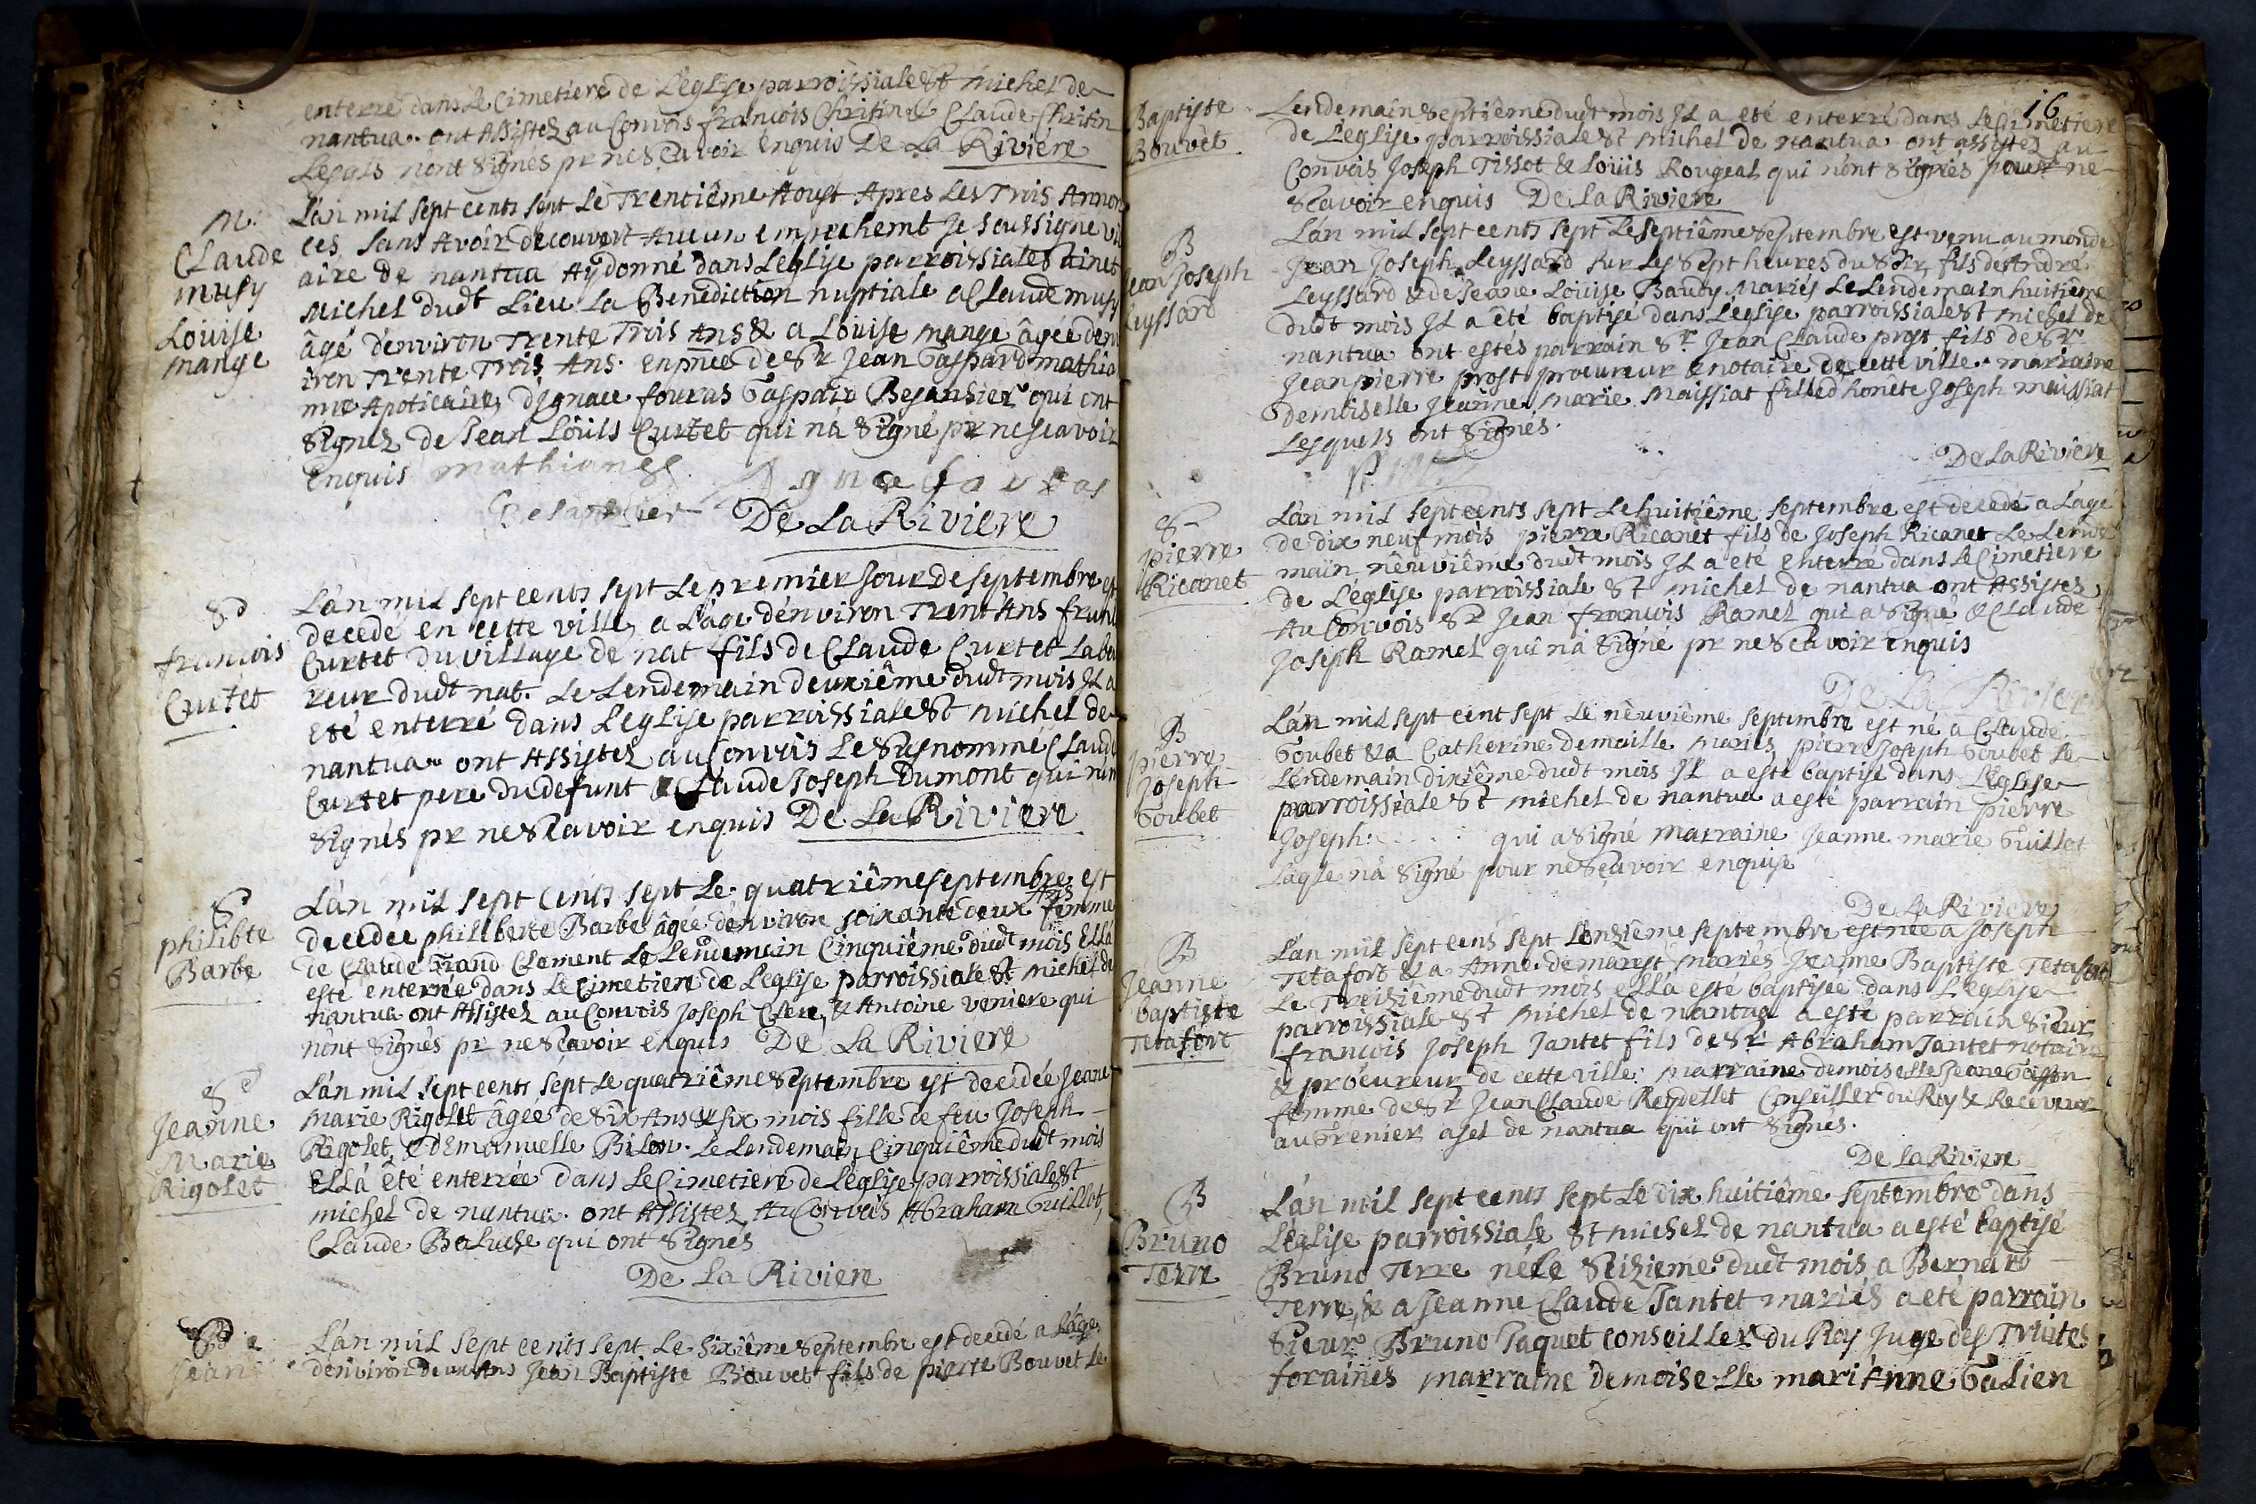 enterré dans Le Cimetiere de L'eglise parroissiale St michel de
nantua. ont Assistez au Convois francois Chritin & CLaude Chritin
Lesqls nont signés pr ne Scavoir enquis De La Riviére
M.
CLaude
musy
Louise
mange
L'an mil sept cents sept Le Trentiême Aoust Apres Les Trois Annon
ces sans Avoir decouvert Aucun empechemt Je soussigné vic
aire de nantua Aÿ donné dans L'eglise parroissiale Sainct
Michel dudt Lieu La Benediction nuptiale a CLaude musy
âgé d'environ Trente Trois Ans & a Louise mange âgée denv
iron Trente Trois Ans. en pnce de Sr Jean Gaspard mathia
Apoticaire, d'ignace fouras Gaspard Besansier qui ont
signez de Jean Louis Curtet qui n'a signé pr ne scavoir
Enquis mathian
Ignace fouras
Besansier De La Riviere
Sd
francois
Curtet
L'an mil sept cents sept Le premier Jour de septembre est
decedé en cette ville, a L'age d'environ Trent'Ans franc
Curtet du village de nat fils de CLaude Curtet Labou
reur dudt nat. Le Lendemain deuxiême dudt mois JL a
eté enterré dans L'eglise parroissiale St michel de
nantua. ont Assistez au Convois Le susnommé CLaude
Curtet pere du defunt & CLaude Joseph Dumont qui n'on
signés pr ne Scavoir enquis De La Riviere
Sd
philibte
Barbe
L'an mil sept Cents sept Le quatriême septembre est
decedee philiberte Barbe âgée d'environ soixante deux Ans femme
de CLaude Grand CLement Le Lendemain Cinquiême dudt mois Ell'a
esté enterrée dans Le Cimetiere de L'eglise parroissiale St michel de
nantua ont Assistez au Convois Joseph Clerc, & Antoine veniere qui
nont signés pr ne Scavoir enquis De La Riviere
Sd
Jeanne
Marie
Rigolet
L'an mil sept cents sept Le quatriême septembre est decedée Jeane
marie Rigolet âgée de Six Ans & six mois fille de feu Joseph
Rigolet, & d'Emanuelle Bilon. Le Lendemain Cinquiême dudt mois
ELL'à eté enterrée dans Le Cimetiere de L'eglise parroissiale St
michel de nantua. ont Assistez Au Convois Abraham Guillot,
CLaude Baluche qui ont signés
De La Riviere
Jean
L'an mil sept cents sept Le sixiême septembre est decedé a L'age
d'environ deux Ans Jean Baptiste Bouvet fils de pierre Bouvet Le
16
Baptiste
Bouvet
Lendemain septiême dudt mois JL a eté enterré dans Le Cimetiere
de L'eglise parroissiale St michel de nantua ont assistez au
Convois Joseph Tissot & Louis Rougeat qui n'ont signés pour ne
Scavoir enquis De La Riviere
B
Jean Joseph
Leyssard
L'an mil sept cents sept Le septiême septembre est venu au monde
Jean Joseph Leyssard sur Les sept heures du Soir, fils de André
Leyssard & de Jeane Louise Baudy Mariés Le Lendemain huitieme
dudt mois JL a êté baptisé dans L'eglise parroissiale St michel de
nantua ont estés parrain Sr Jean CLaude prost fils de Sr
Jean pierre prost procureur & notaire de cette ville. marraine
demoiselle Jeanne Marie Maissiat fille d'honete Joseph maissiat
Lesquels ont signés.
De La Riviere
S
pierre
Ricanet
L'an mil sept cents sept Le huitiême septembre est decedé a L'age
de dix neuf mois pierre Ricanet fils de Joseph Ricanet Le Lende
main neuviême dudt mois JL a eté enterré dans Le Cimetiere
de L'eglise parroissiale St michel de nantua ont Assistez
Au Convois Sr Jean francois Ramel qui a signé & CLaude
Joseph Ramel qui n'a signé pr ne Scavoir enquis
De La Riviere
B
pierre
Joseph
Goubet
L'an mil sept cent sept Le neuviême septembre est né a CLaude
Goubet & a Catherine demaille mariés pierre Joseph Goubet Le
Lendemain dixiême dudt mois JL a esté baptisé dans L'eglise
parroissiale St michel de nantua a esté parrain pierre
Joseph. . . . . qui a signé marraine Jeanne marie Guillot
Laqle n'a signé pour ne Scavoir enquise
De La Riviere
B
Jeanne
baptiste
Tetafort
L'an mil sept cens sept L'onziême septembre est née a Joseph
Tetafort & a Anne demarest mariés Jeanne Baptiste Tetafort
Le Treiziême dudt mois ell'a esté baptisée dans L'eglise
parroissiale St michel de nantua a esté parrain Sieur
francois Joseph Jantet fils de Sr Abraham Jantet notaire
& procureur de cette ville. marraine demoiselle Jeane
femme de Sr Jean Claude Reydellet Conseiller du Roy & Receveur
au Grenier a sel de nantua qui ont signés.
De La Riviere
B
Bruno
Terre
L'an mil sept cents sept Le dix huitiême septembre dans
L'eglise parroissiale St michel de nantua a esté baptisé
Bruno Terre né Le Seizieme dudt mois a Bernard
Terre, & a Jeanne CLaude Jantet mariés a eté parrain
Sieur Bruno Jaquet conseiller du Roy Juge des Traites
foraines marraine demoiselle mari'Anne Galien